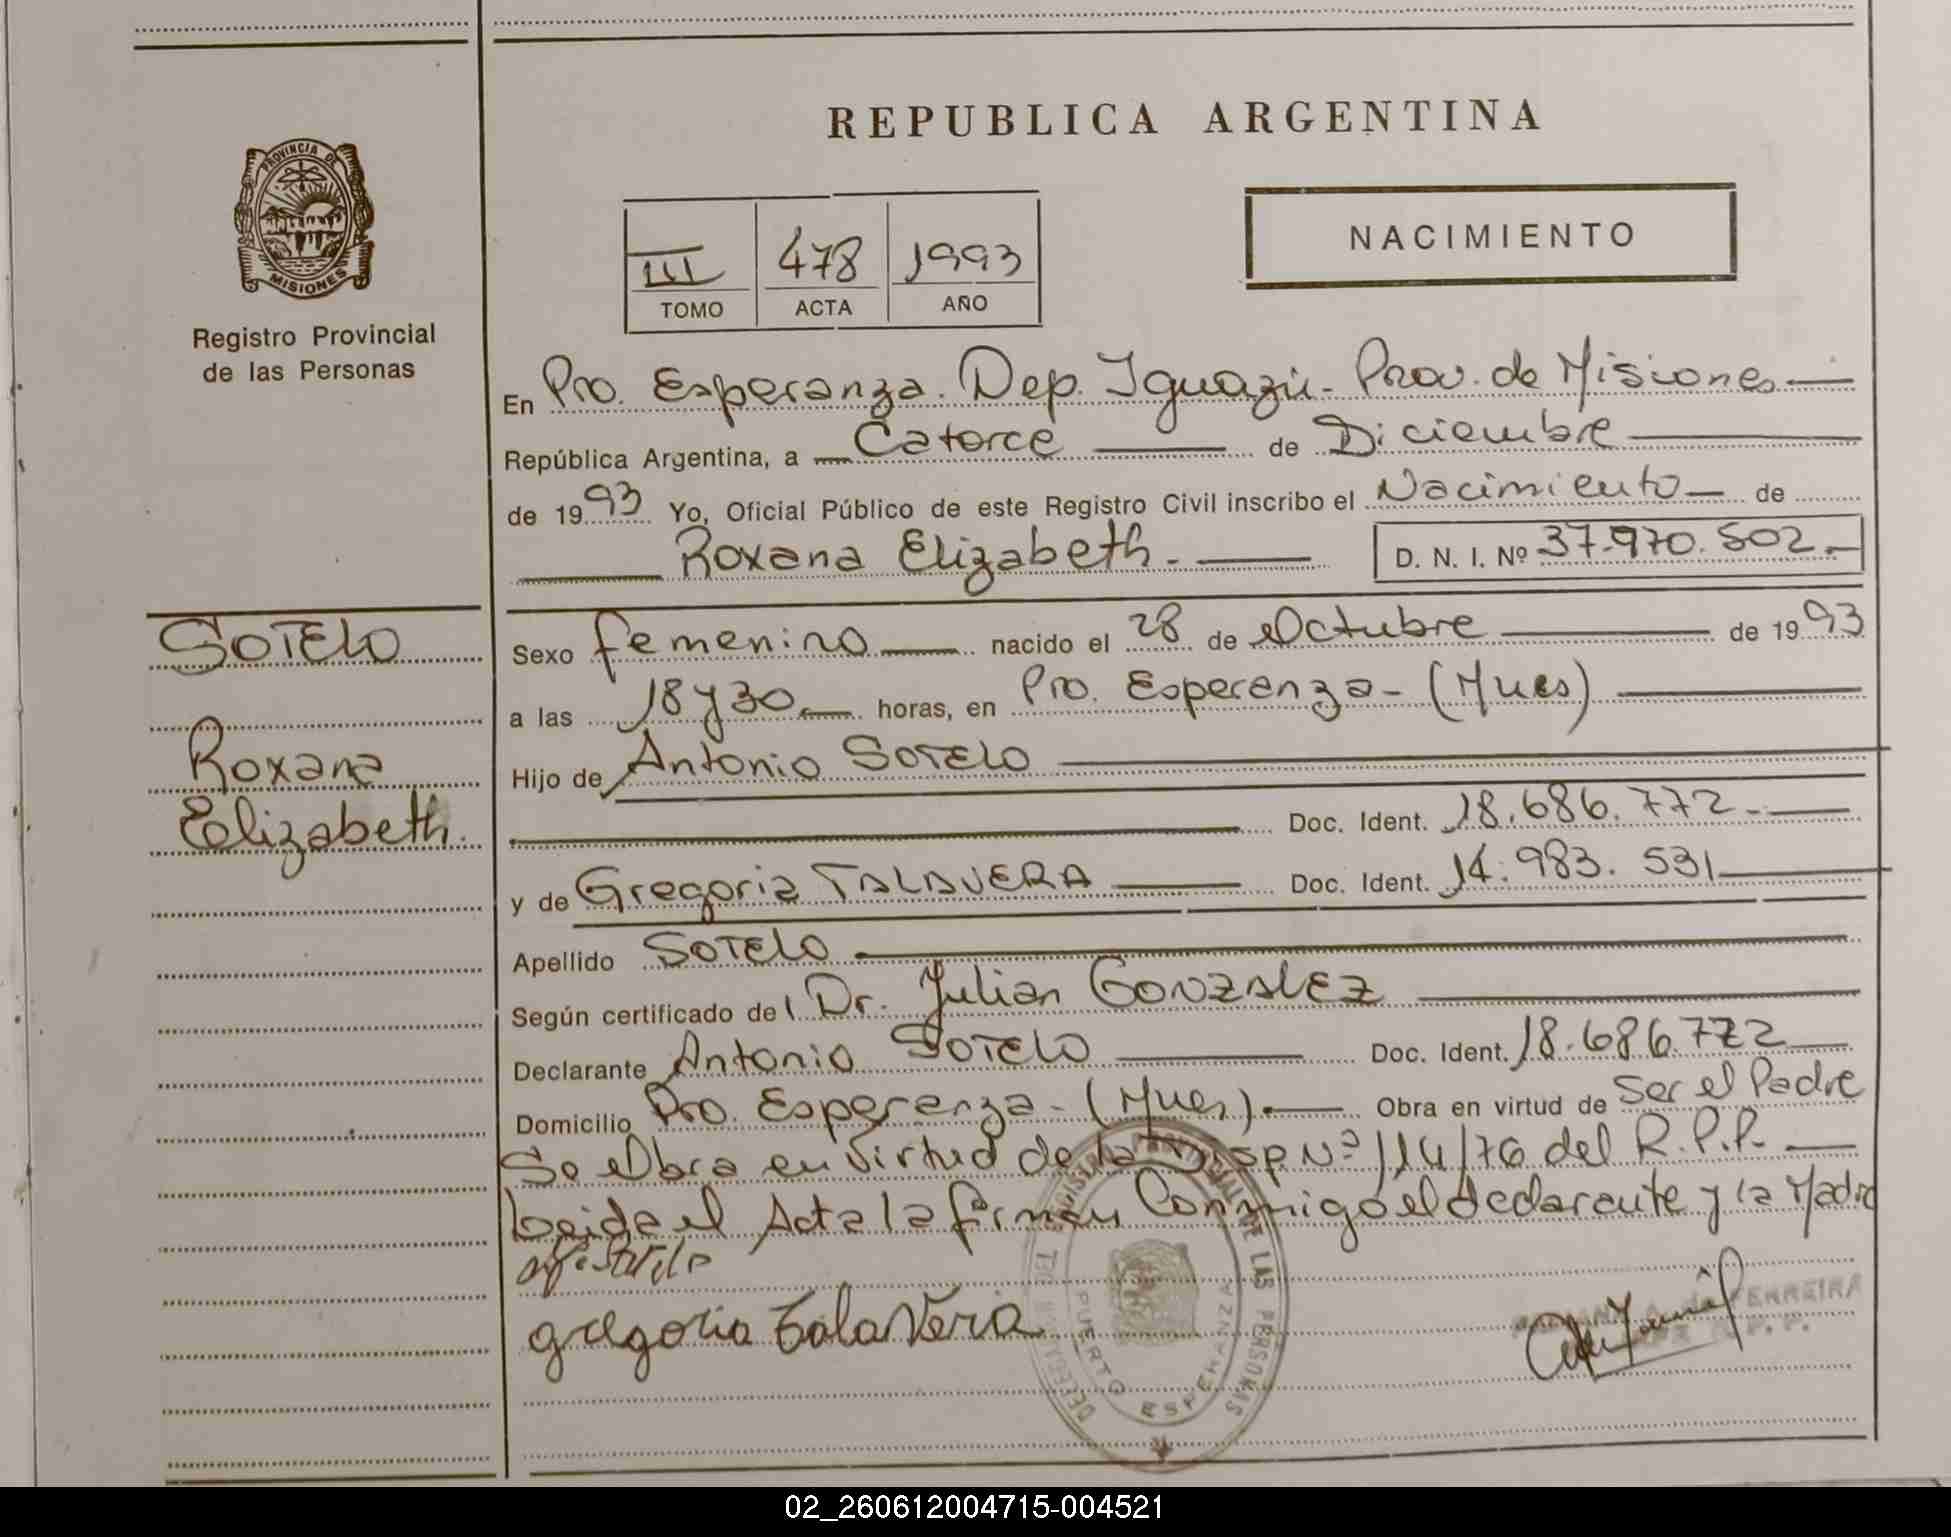 REPUBLICA ARGENTINA
PROVINCIA DE
MISIONES
Registro Provincial
de las Personas
III 478 1993
TOMO ACTA AÑO
NACIMIENTO
En Pto. Esperanza. Dep. Iguazú- Prov. de Misiones
República Argentina, a Catorce de Diciembre
de 1993 Yo, Oficial Público de este Registro Civil inscribo el Nacimiento de
Roxana Elizabeth. D. N. I. Nº 37.970.502
SOTELO
Roxana
Elizabeth.
Sexo femenino nacido el 28 de Octubre de 1993
a las 18 y 30 horas, en Pto. Esperanza - (Mnes)
Hijo de Antonio SOTELO
Doc. Ident. 18.686.772
y de Gregoria TALAVERA Doc. Ident. 14.983.531
Apellido SOTELO
Según certificado del Dr. Julian GONZALEZ
Declarante Antonio SOTELO Doc. Ident. 18.686.772
Domicilio Pto. Esperanza - (Mnes). Obra en virtud de Ser el Padre
Se Obra en Virtud de la Disp Nº 114/76 del R.P.P.
Leida el Acta la firman Conmigo el declarante y la Madre
gregoria talavera
PUERTO ESPERANZA
DE LAS PERSONAS
FERREIRA
02_260612004715-004521